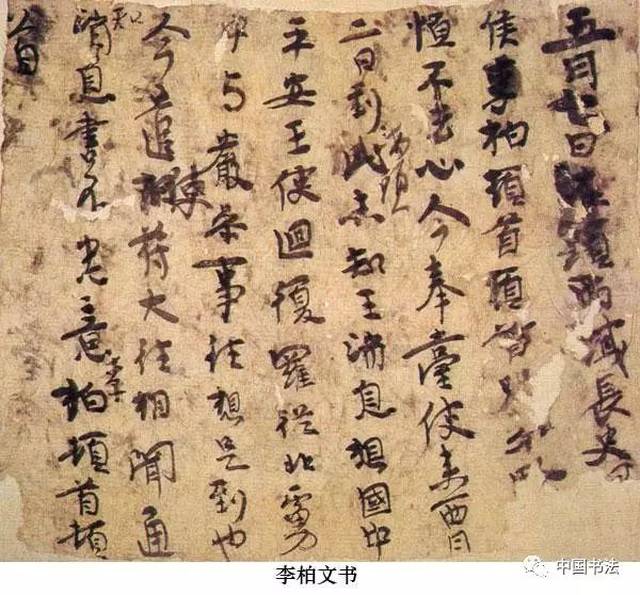 五月七日海頭西域長史
侯李柏頓首頓首別
恒不去心今奉臺使來西月
二日到此海頭未知王消息想國中
平安王使迴復羅從北虜
中与嚴參事往想是到也
今遣使苻大往相聞通
知消息書不悉意李柏頓首頓
首
李柏文书
中国书法